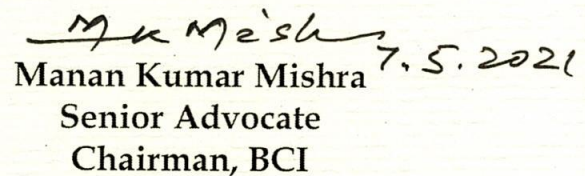 M K Mishra
7.5.2021
Manan Kumar Mishra
Senior Advocate
Chairman, BCI